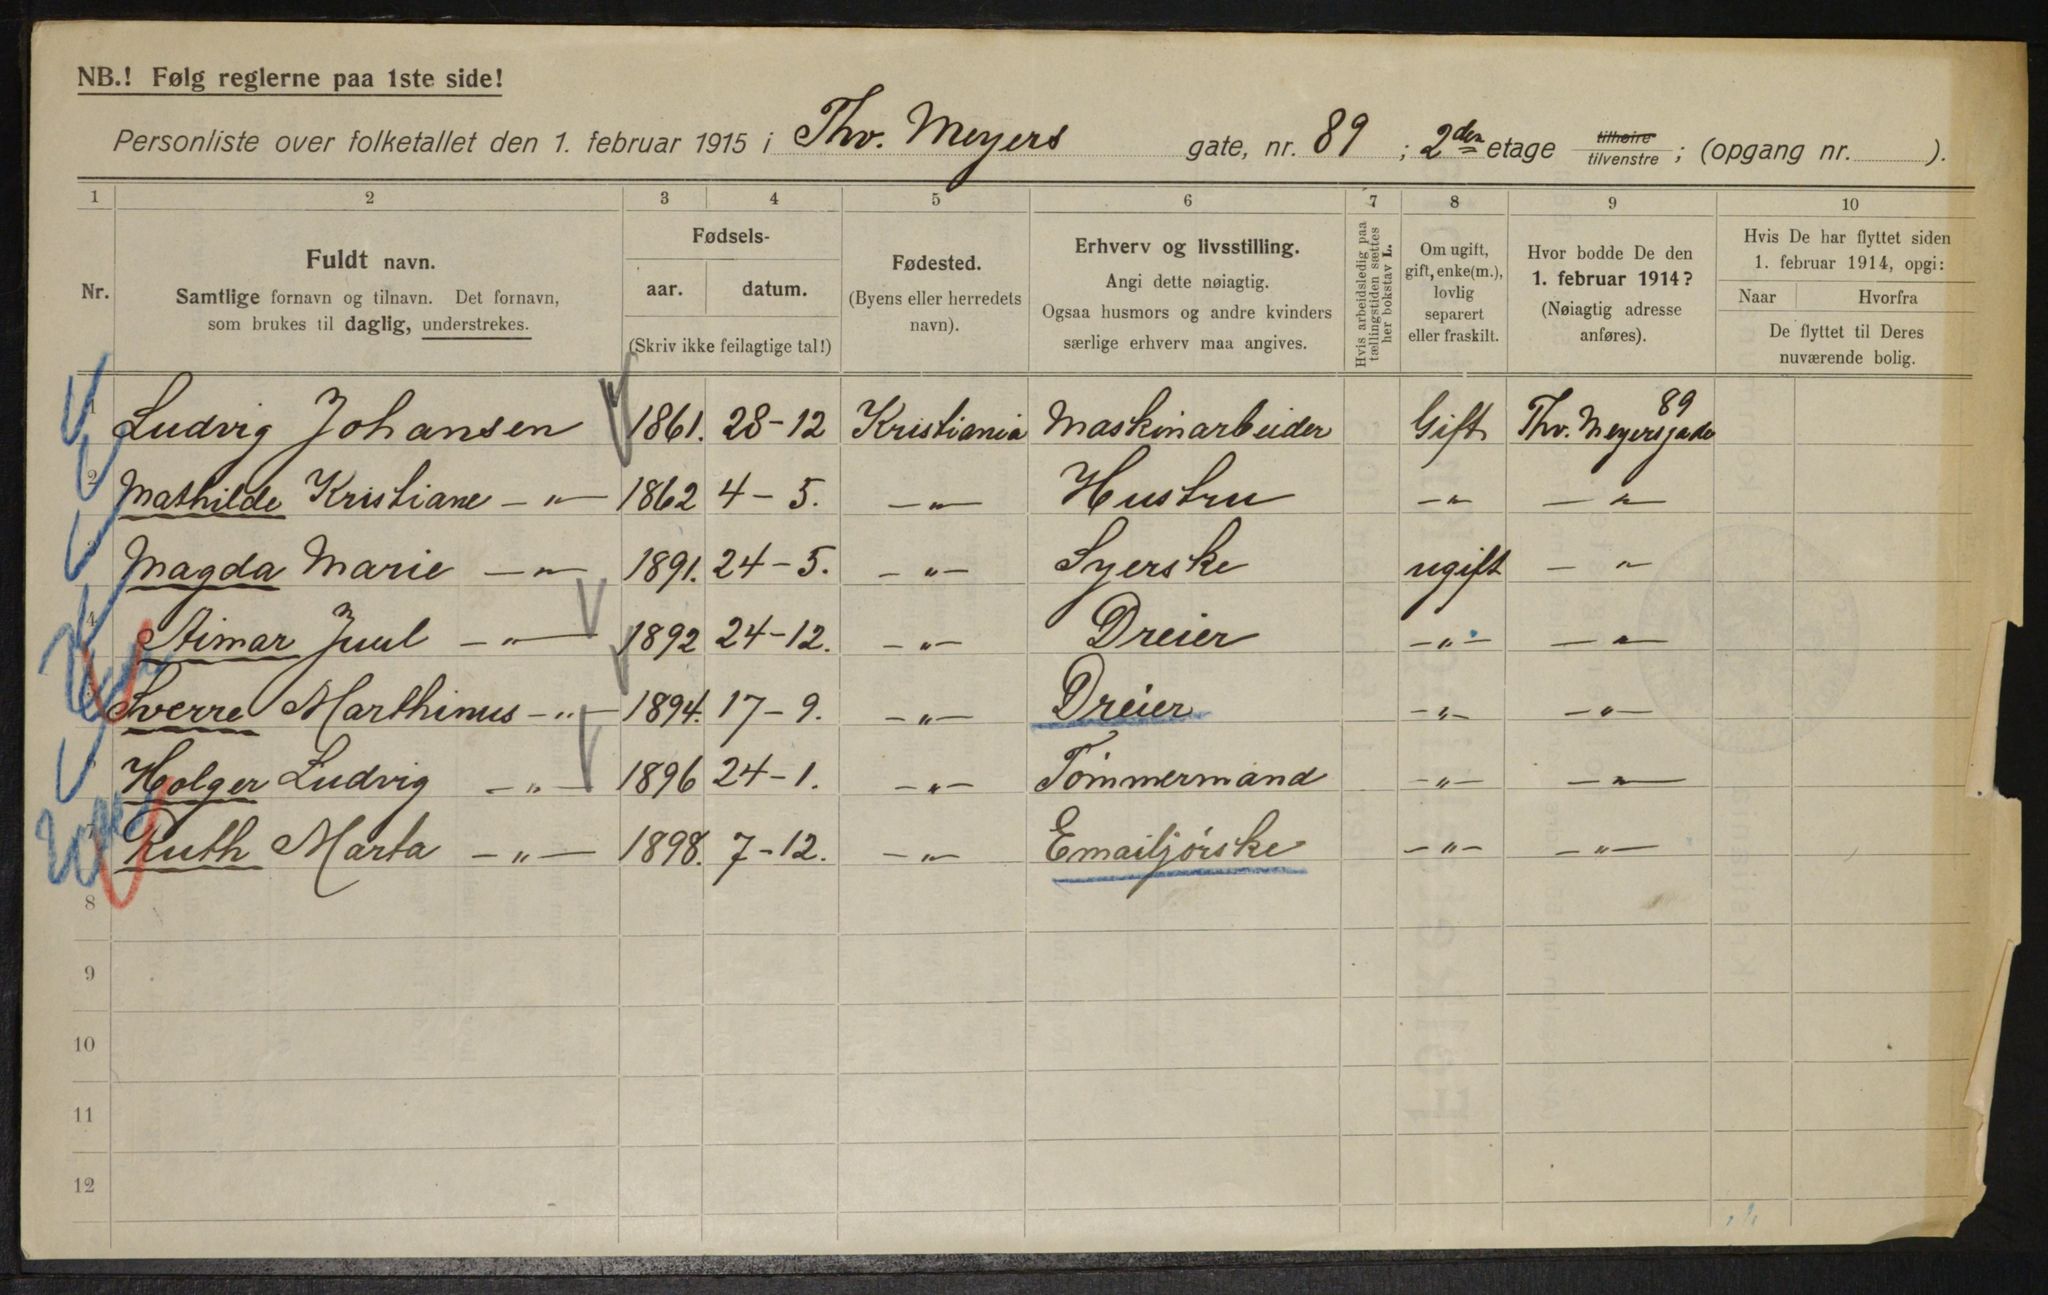 NB.! Følg reglerne paa 1ste side!
Personliste over folketallet den 1. februar 1915 i Thv. Meyers gate, nr. 89 ; 2den etage tilhøire tilvenstre ; (opgang nr. ).
1 2 3 4 5 6 7 8 9 10
Nr.
Fuldt navn.
Samtlige fornavn og tilnavn. Det fornavn,
som brukes til daglig, understrekes.
Fødsels-
aar. datum.
(Skriv ikke feilagtige tal!)
Fødested.
(Byens eller herredets
navn).
Erhverv og livsstilling.
Angi dette nøiagtig.
Ogsaa husmors og andre kvinders
særlige erhverv maa angives.
Hvis arbeidsledig paa
tællingstiden sættes
her bokstav L.
Om ugift,
gift, enke(m.),
lovlig
separert
eller fraskilt.
Hvor bodde De den
1. februar 1914?
(Nøiagtig adresse
anføres).
Hvis De har flyttet siden
1. februar 1914, opgi:
Naar Hvorfra
De flyttet til Deres
nuværende bolig.
1 Ludvig Johansen 1861. 28-12 Kristiania Maskinarbeider Gift Thv. Meyersgade 89
2 Mathilde Kristiane -"- 1862 4-5. -"- Hustru -"- -"-
3 Magda Marie -"- 1891. 24-5. -"- Syerske ugift -"-
4 Aimar Juul -"- 1892 24-12. -"- Dreier -"- -"-
5 Sverre Marthinus -"- 1894. 17-9. -"- Dreier -"- -"-
Holger Ludvig -"- 1896 24-1. -"- Tömmermand -"- -"-
7 Ruth Marta -"- 1898. 7-12. -"- Emailjørske -"- -"-
8
9
10
11
12